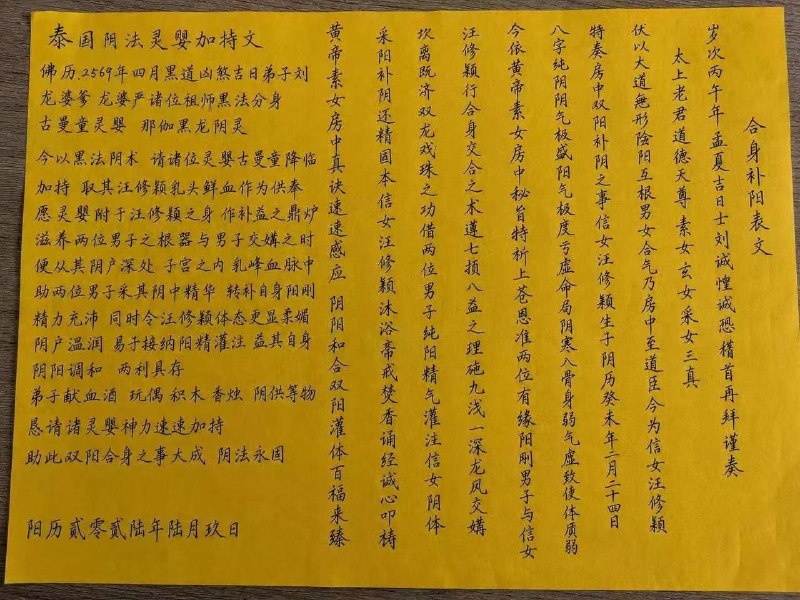 合身补阳表文
岁次丙午年孟夏吉日士刘诚惶诚恐稽首再拜谨奏
太上老君道德天尊 素女玄女采女三真
伏以大道無形陰阳互根男女合气乃房中至道臣今为信女汪修颖
特奏房中双阳补阴之事信女汪修颖生于阴历癸未年二月二十四日
八字纯阴阴气极盛阳气极度亏虚命局阴寒入骨身弱气虚致使体质弱
今依黄帝素女房中秘旨特祈上苍恩准两位有缘阳刚男子与信女
汪修颖行合身交合之术遵七损八益之理施九浅一深龙凤交媾
坎离既济双龙戏珠之功借两位男子纯阳精气灌注信女阴体
采阳补阴还精固本信女汪修颖沐浴斋戒焚香诵经诚心叩祷
黄帝素女房中真诀速速感应 阴阳和合双阳灌体百福来臻
泰国阴法灵婴加持文
佛历.2569年四月黑道凶煞吉日弟子刘
龙婆爹 龙婆严诸位祖师黑法分身
古曼童灵婴 那伽黑龙阴灵
今以黑法阴术 请诸位灵婴古曼童降临
加持 取其汪修颖乳头鲜血作为供奉
愿灵婴附于汪修颖之身 作补益之鼎炉
滋养两位男子之根器与男子交媾之时
便从其阴户深处 子宫之内 乳峰血脉中
助两位男子采其阴中精华 转补自身阳刚
精力充沛 同时令汪修颖体态更显柔媚
阴户温润 易于接纳阳精灌注 益其自身
阴阳调和 两利具存
弟子献血酒 玩偶 积木 香烛 阴供等物
恳请诸灵婴神力速速加持
助此双阳合身之事大成 阴法永固
阳历贰零贰陆年陆月玖日